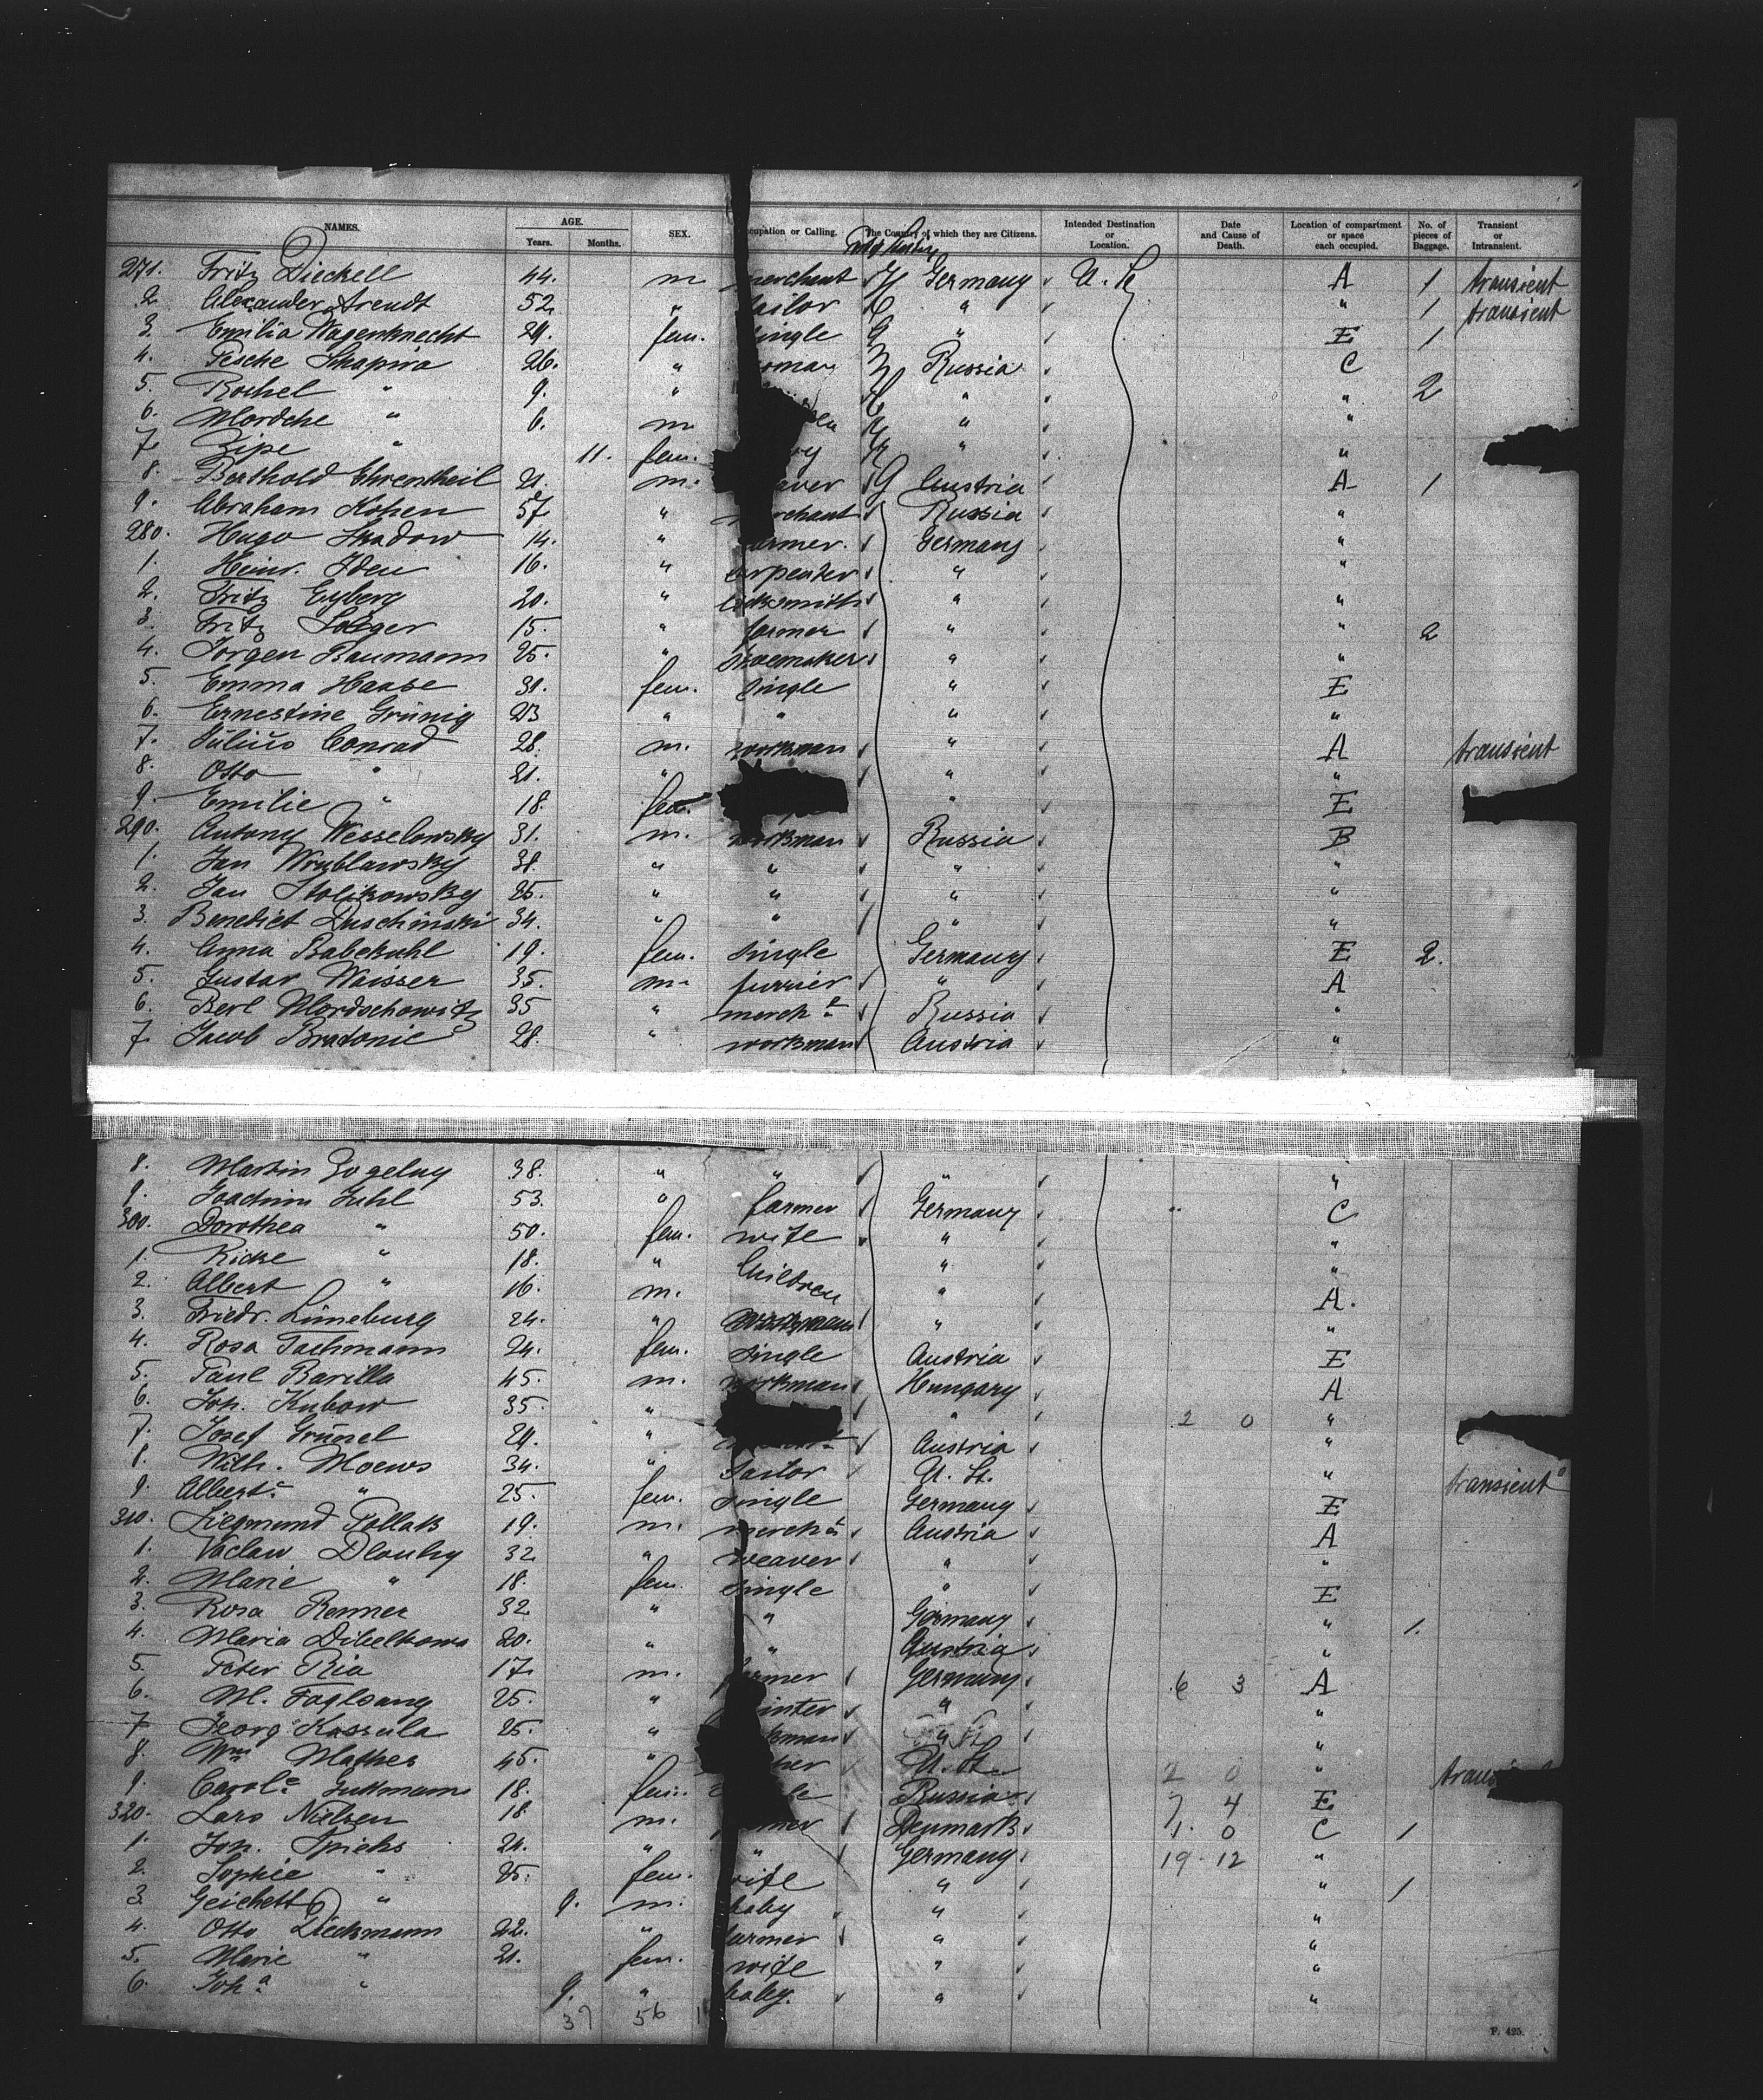 NAMES. AGE. Years. Months. SEX. cupation or Calling. The Country of which they are Citizens. Intended Destination or Location. Date and Cause of Death. Location of compartment or space each occupied. No. of pieces of Baggage. Transient or Intransient.
271. Fritz Dieckell 44. m merchant Germany U. St A 1 transient
2 Alexander Arendt 52 " tailor " " 1 transient
3. Emilia Wagenknecht 29. fem. single " E 1
4. Pesche Shapira 26. " Russia C
5. Rochel " 9. " " " 2
6. Mordche " 6. m " "
7. Zipe " 11. fem. " "
8. Berthold Ehrentheil 21. m. aver Austria A 1
9. Abraham Kohen 57 " rchant Russia "
280. Hugo Shadow 14. " armer. Germany "
1. Heinr. Iden 16. " arpenter " "
2. Fritz Eyberg 20. " locksmith " "
3. Fritz 15. " farmer " " 2
4. Jorgen Baumann 25. " shoemaker " "
5. Emma Haase 31. fem. single " E
6. Ernestine Grünig 23 " " " "
7. Julius Conrad 28. m. workman " A transient
8. Otto " 21. " " "
9. Emilie " 18. fem. " E
290. Antony Wesselowsky 31. m. workman Russia B
1. Jan Wrublawsky 38. " " " "
2. Jan Stolikowsky 25. " " " "
3. Benedict Duschinski 34. " " " "
4. Anna Babekuhl 19. fem. single Germany E 2.
5. Gustav Waisser 35. m. furrier " A
6. Berl Mordschowitz 35 " mercht Russia "
7 Jacob Bratonic 28. " workman Austria "
8. Martin Gogelny 38. " " " "
9. Joachim Juhl 53. " farmer Germany C
300. Dorothea " 50. fem. wife " "
1. Ricke " 18. " Children " "
2. Albert " 16. m. " A.
3. Friedr. Lüneburg 24. " workman " "
4. Rosa Tachmann 24. fem. single Austria E
5. Paul Barilla 45. m. workman Hungary A
6. Joh. Kubow 35. " " 2 0 "
7. Josef Grünzel 24. " Austria "
8. Wilh. Moews 34. " tailor U. St. " transient
9. Alberte " 25. fem. single Germany E
310. Siegmund Pollak 19. m. mercht Austria A
1. Vaclaw Dlouhy 32 " weaver " "
2. Marie " 18. fem. single " E
3. Rosa Renner 32 " " Germany " 1.
4. Maria Dibelkowa 20. " " Austria "
5. Peter Ria 17. m. farmer Germany 6 3 A
6. M. Foglsang 25. " inter " "
7 Georg Kassula 25. " kman " "
8. Wm Mathes 45. " U. St. 2 0 "
9. Carole Guttmann 18. fem. Russia 7 4 E
320. Lars Nielsen 18 m. Denmark 1. 0 C 1
1. Joh. Spiehs 24. " " Germany 19 12 "
2. Sophie " 25. fem. wife " " 1
3. " 9. m. baby " "
4. Otto Dieckmann 22. " farmer " "
5. Marie " 21. fem. wife " "
6. Joha " 9. " baby. " "
37 56
F. 425.